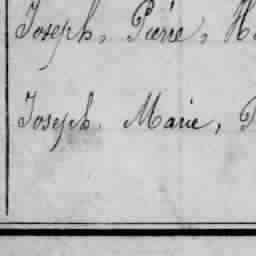 Joseph, Pierre,
Joseph Marie,